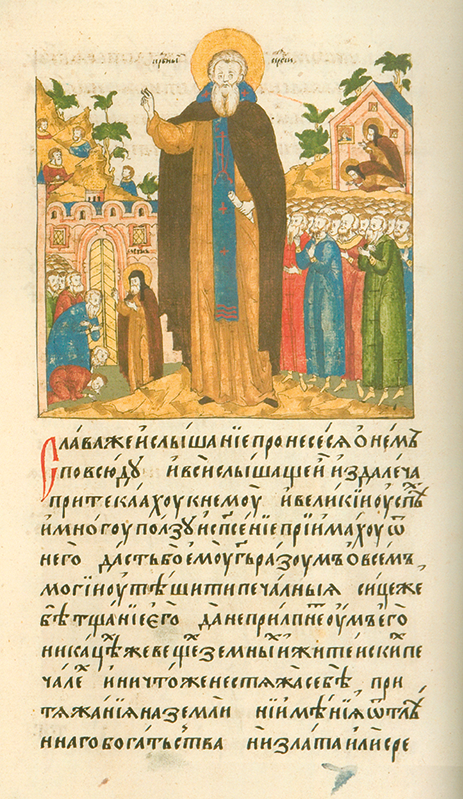 Слава же и слышанїе пронесеся ѡ немъ
повсюду и вси слышащеи издалеча
притекахоу к немоу и великїи оуспѣ
и многоу ползу и сп҃сенїе прїимахоу ѿ
него дастъ бо емоу гь разоумъ о всемъ
могїи оутѣшити печалныя сицеже
бѣ тщанїе его да не прилпнет оумъ его
никацѣже вещи земныи житеискїи пе
чале и ничтоже не стяжа себѣ при
тяжанїя на земли ни имѣнїя ѿ тлѣ
ннаго богатьства ни злата или сре